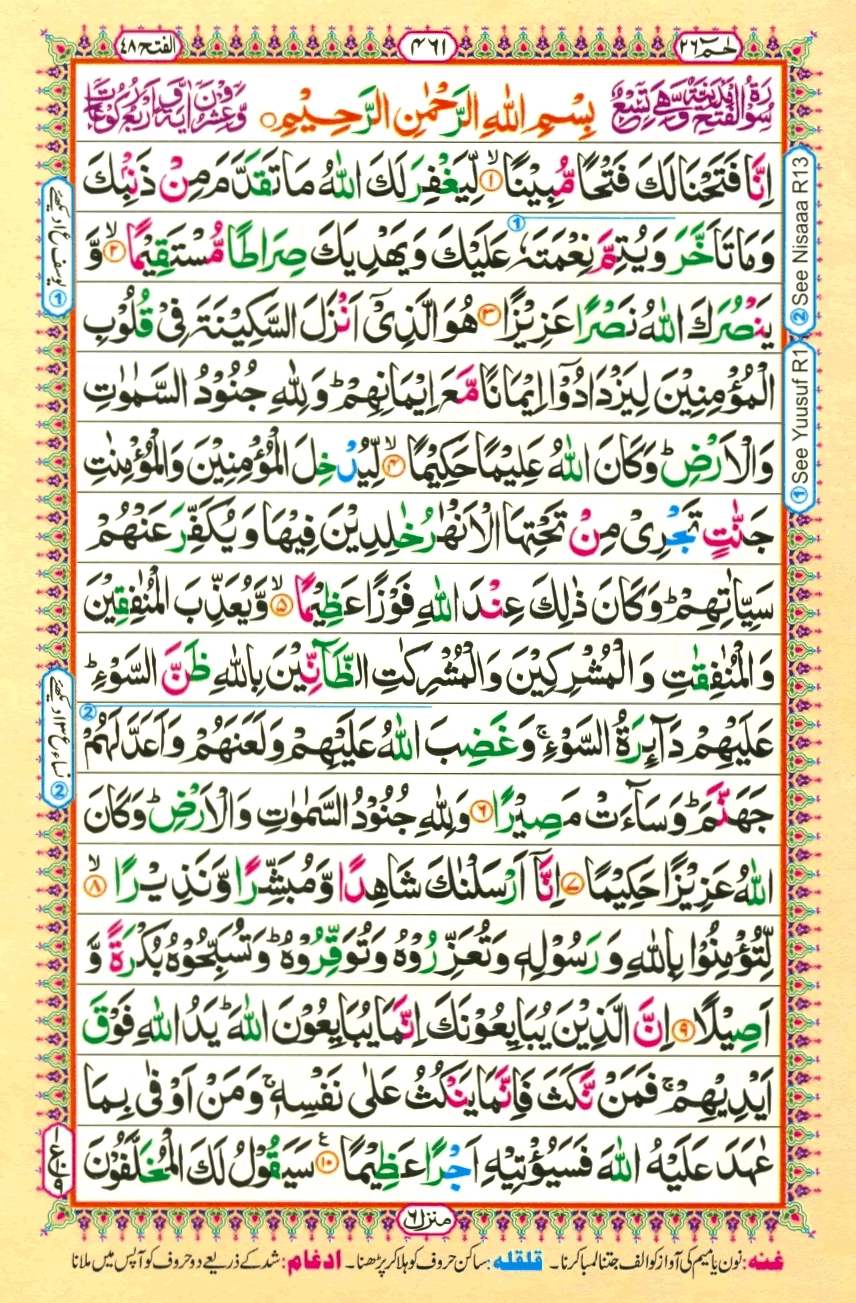 حٰمٓ ٢٦
٤٦١
الفتح ٤٨
سُوْرَةُ الْفَتْحِ مَدَنِيَّةٌ وَّهِيَ تِسْعٌ
بِسْمِ اللهِ الرَّحْمٰنِ الرَّحِيْمِ
وَّعِشْرُوْنَ اٰيَةً وَّاَرْبَعُ رُكُوْعَاتٍ
اِنَّا فَتَحْنَا لَكَ فَتْحًا مُّبِيْنًا ۙ﴿١﴾ لِّيَغْفِرَ لَكَ اللهُ مَا تَقَدَّمَ مِنْ ذَنْۢبِكَ
وَمَا تَاَخَّرَ وَيُتِمَّ نِعْمَتَهٗ عَلَيْكَ وَيَهْدِيَكَ صِرَاطًا مُّسْتَقِيْمًا ۙ﴿٢﴾ وَّ
يَنْصُرَكَ اللهُ نَصْرًا عَزِيْزًا ﴿٣﴾ هُوَ الَّذِيْٓ اَنْزَلَ السَّكِيْنَةَ فِيْ قُلُوْبِ
الْمُؤْمِنِيْنَ لِيَزْدَادُوْٓا اِيْمَانًا مَّعَ اِيْمَانِهِمْ ؕ وَلِلّٰهِ جُنُوْدُ السَّمٰوٰتِ
وَالْاَرْضِ ؕ وَكَانَ اللهُ عَلِيْمًا حَكِيْمًا ۙ﴿٤﴾ لِّيُدْخِلَ الْمُؤْمِنِيْنَ وَالْمُؤْمِنٰتِ
جَنّٰتٍ تَجْرِيْ مِنْ تَحْتِهَا الْاَنْهٰرُ خٰلِدِيْنَ فِيْهَا وَيُكَفِّرَ عَنْهُمْ
سَيِّاٰتِهِمْ ؕ وَكَانَ ذٰلِكَ عِنْدَ اللهِ فَوْزًا عَظِيْمًا ۙ﴿٥﴾ وَّيُعَذِّبَ الْمُنٰفِقِيْنَ
وَالْمُنٰفِقٰتِ وَالْمُشْرِكِيْنَ وَالْمُشْرِكٰتِ الظَّآنِّيْنَ بِاللهِ ظَنَّ السَّوْءِ ؕ
عَلَيْهِمْ دَآئِرَةُ السَّوْءِ ۚ وَغَضِبَ اللهُ عَلَيْهِمْ وَلَعَنَهُمْ وَاَعَدَّ لَهُمْ
جَهَنَّمَ ؕ وَسَآءَتْ مَصِيْرًا ﴿٦﴾ وَلِلّٰهِ جُنُوْدُ السَّمٰوٰتِ وَالْاَرْضِ ؕ وَكَانَ
اللهُ عَزِيْزًا حَكِيْمًا ﴿٧﴾ اِنَّآ اَرْسَلْنٰكَ شَاهِدًا وَّمُبَشِّرًا وَّنَذِيْرًا ۙ﴿٨﴾
لِّتُؤْمِنُوْا بِاللهِ وَرَسُوْلِهٖ وَتُعَزِّرُوْهُ وَتُوَقِّرُوْهُ ؕ وَتُسَبِّحُوْهُ بُكْرَةً وَّ
اَصِيْلًا ﴿٩﴾ اِنَّ الَّذِيْنَ يُبَايِعُوْنَكَ اِنَّمَا يُبَايِعُوْنَ اللهَ ؕ يَدُ اللهِ فَوْقَ
اَيْدِيْهِمْ ۚ فَمَنْ نَّكَثَ فَاِنَّمَا يَنْكُثُ عَلٰى نَفْسِهٖ ۚ وَمَنْ اَوْفٰى بِمَا
عٰهَدَ عَلَيْهُ اللهَ فَسَيُؤْتِيْهِ اَجْرًا عَظِيْمًا ﴿١٠﴾ سَيَقُوْلُ لَكَ الْمُخَلَّفُوْنَ
② See Nisaaa R13
① See Yuusuf R1
یوسف ع١ دیکھیے ①
نساء ع١٣ دیکھیے ②
منزل ٦
غنہ: نون یا میم کی آواز کو الف جتنا لمبا کرنا۔ قلقلہ: ساکن حروف کو ہلا کر پڑھنا۔ ادغام: شد کے ذریعے دو حروف کو آپس میں ملانا